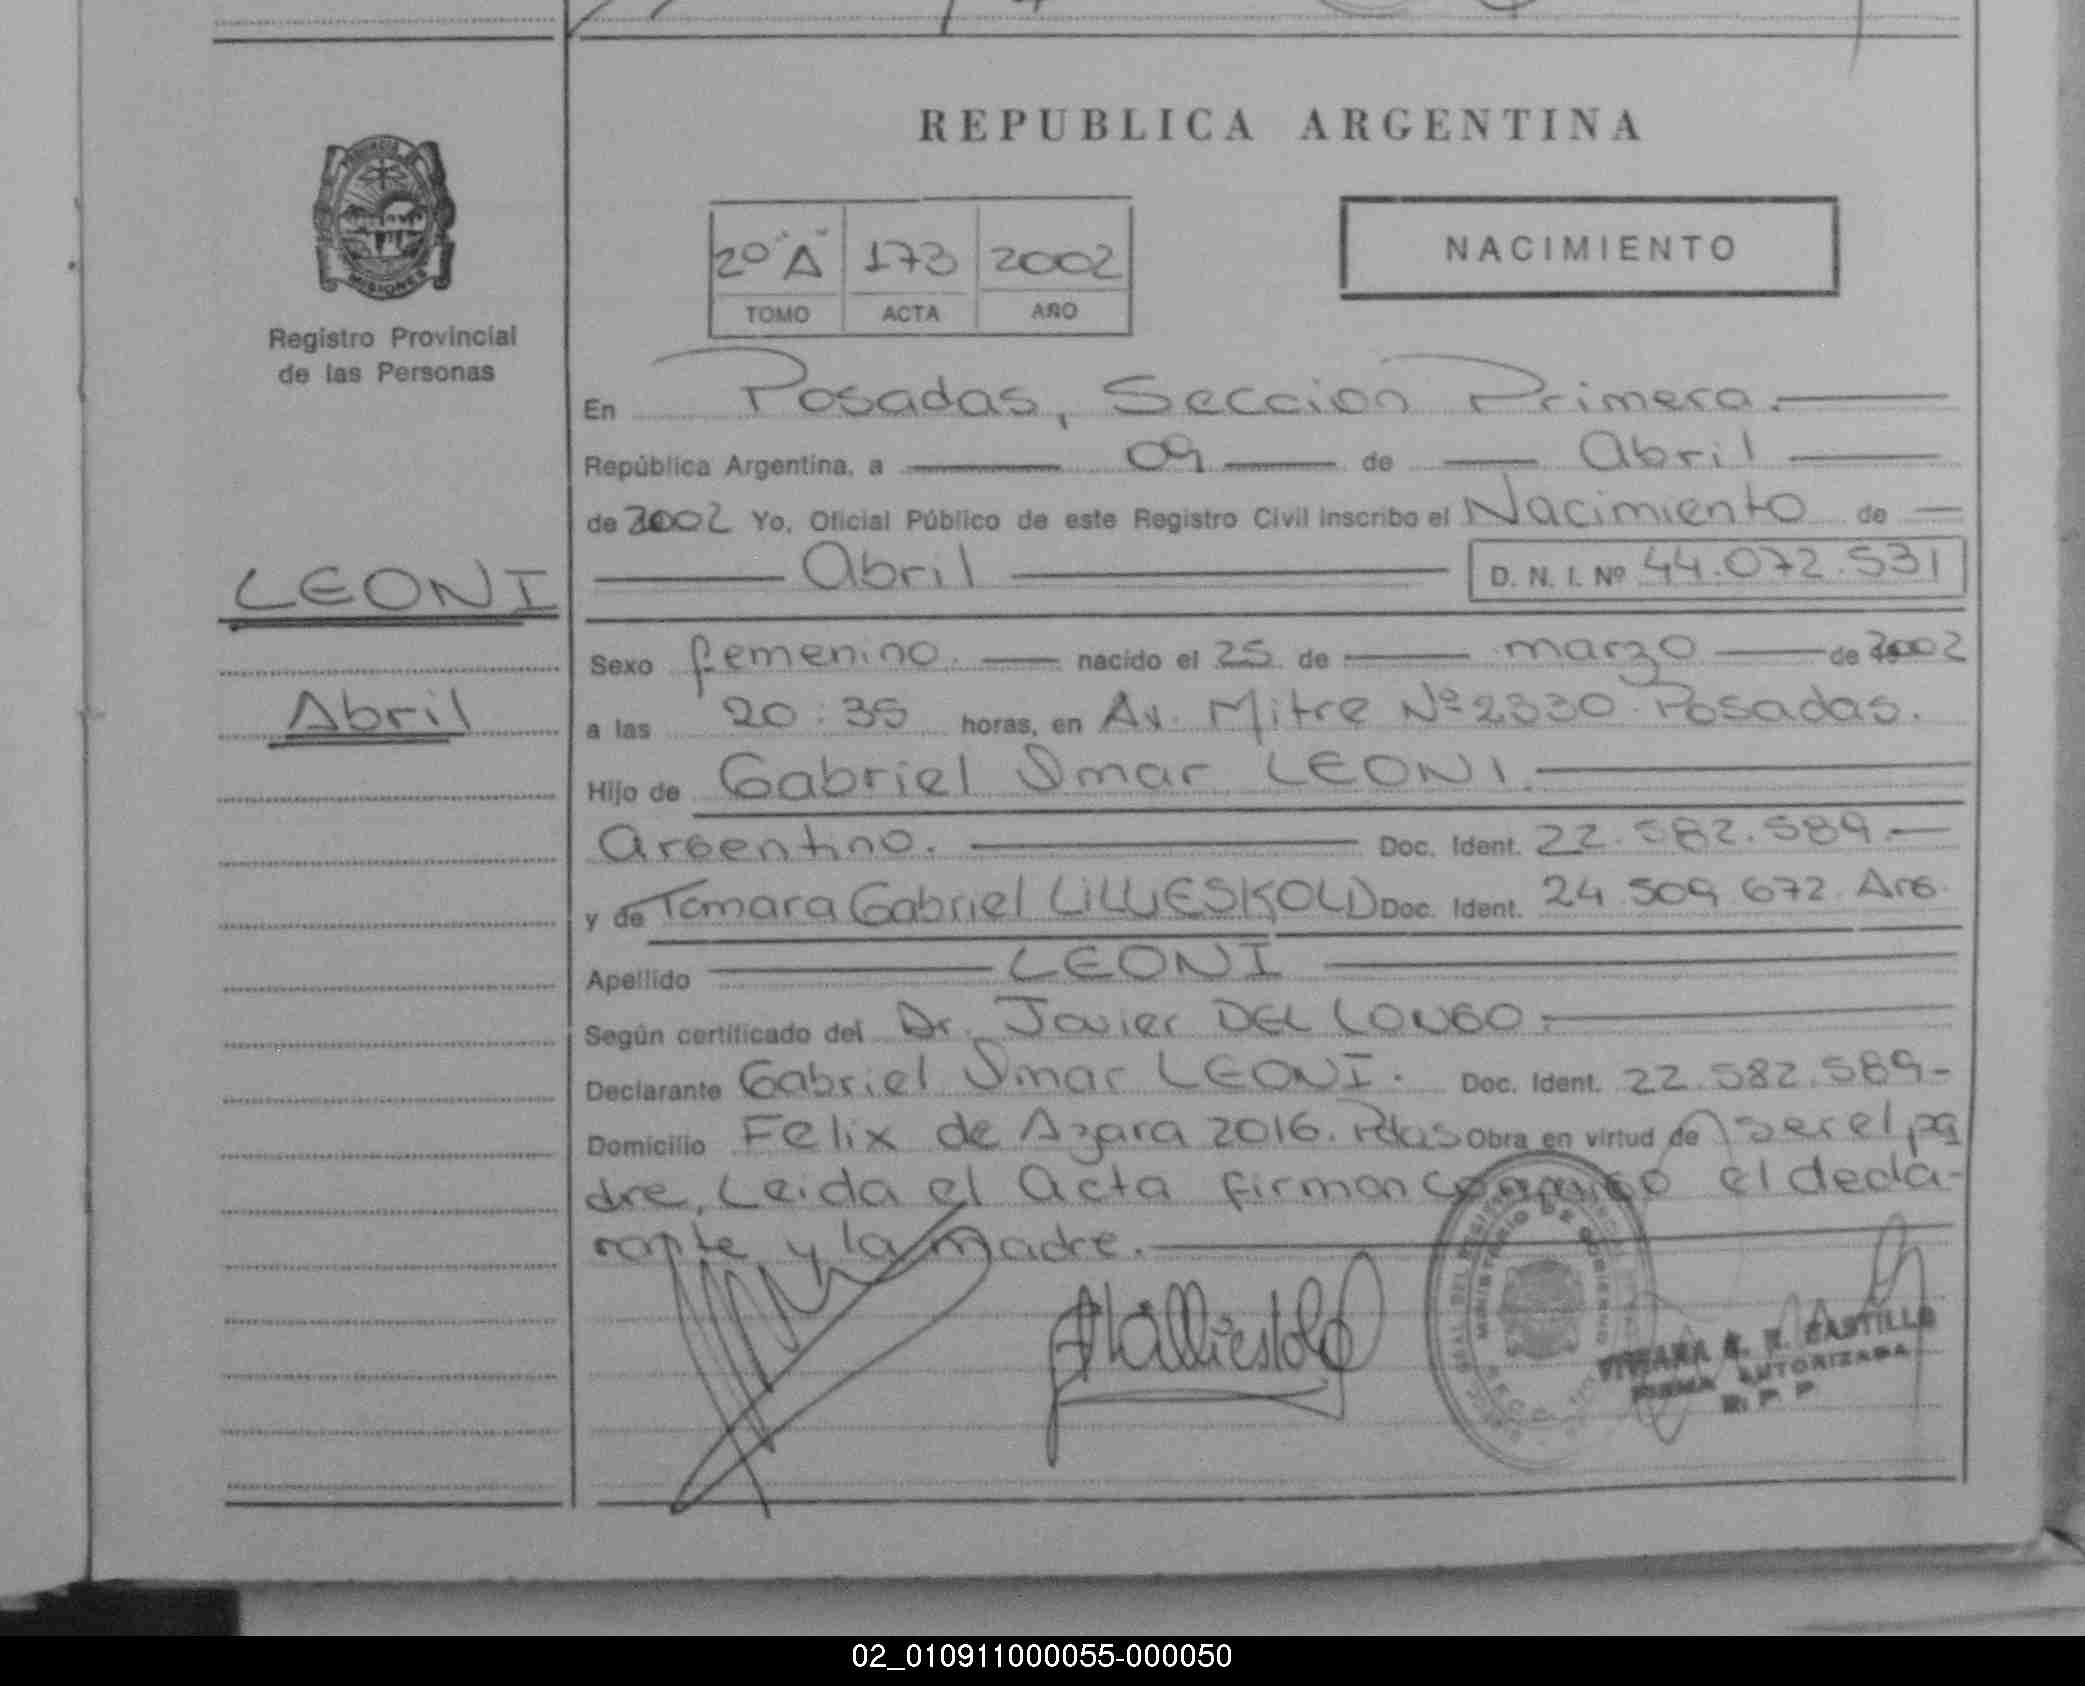 REPUBLICA ARGENTINA
NACIMIENTO
2º "A" 173 2002
TOMO ACTA AÑO
Registro Provincial
de las Personas
MISIONES
En Posadas, Seccion Primera.
República Argentina, a 09 de Abril
de 2002 Yo, Oficial Público de este Registro Civil inscribo el Nacimiento de
Abril D. N. I. Nº 44.072.531
LEONI
Abril
Sexo femenino. nacido el 25 de marzo de 2002
a las 20:35 horas, en Av. Mitre Nº 2330 Posadas.
Hijo de Gabriel Omar LEONI.
Argentino. Doc. Ident. 22.582.589
y de Tamara Gabriel LILLIESKOLD Doc. Ident. 24.509.672. Arg.
Apellido LEONI
Según certificado del Dr. Javier DEL LONGO.
Declarante Gabriel Omar LEONI. Doc. Ident. 22.582.589-
Domicilio Felix de Azara 2016. Pdas Obra en virtud de ser el pa
dre, Leida el Acta firman conmigo el decla-
rante y la madre.
MINISTERIO DE GOBIERNO
VIVIANA CASTILLO
FIRMA AUTORIZADA
R. P. P.
02_010911000055-000050